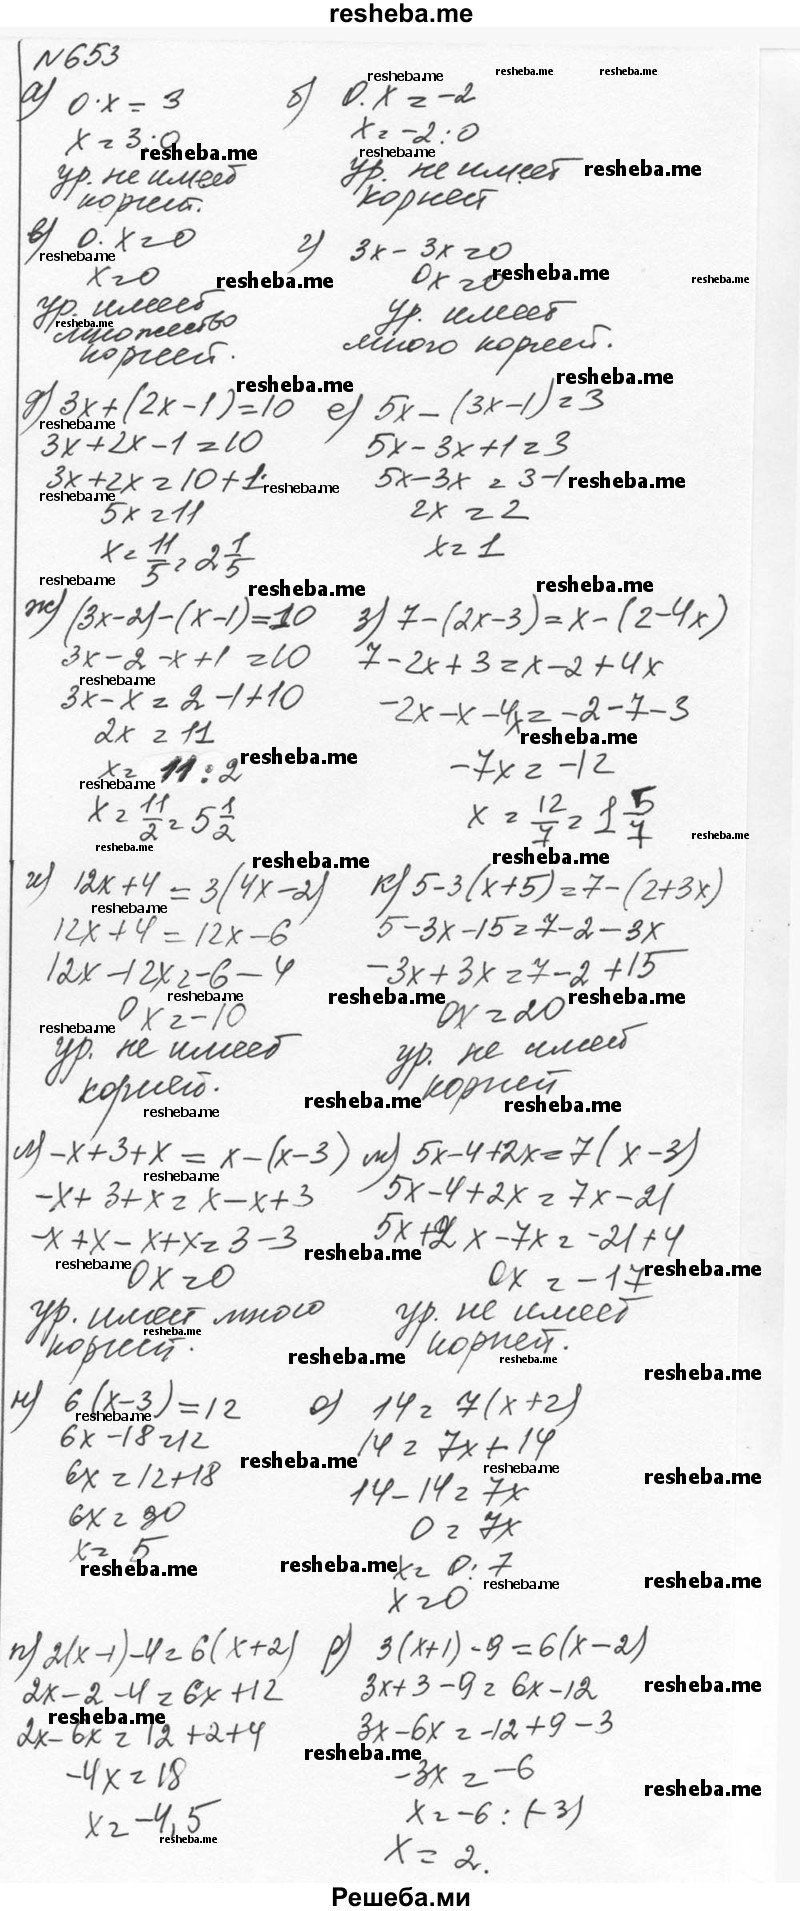 resheba.me
№653
а) 0·x = 3
x = 3:0
ур. не имеет
корней.
б) 0·x = -2
x = -2:0
ур. не имеет
корней
в) 0·x = 0
x = 0
ур. имеет
множество
корней.
г) 3x - 3x = 0
0x = 0
ур. имеет
много корней.
д) 3x + (2x - 1) = 10
3x + 2x - 1 = 10
3x + 2x = 10 + 1
5x = 11
x = 11/5 = 2 1/5
е) 5x - (3x - 1) = 3
5x - 3x + 1 = 3
5x - 3x = 3 - 1
2x = 2
x = 1
ж) (3x - 2) - (x - 1) = 10
3x - 2 - x + 1 = 10
3x - x = 2 - 1 + 10
2x = 11
x = 11 : 2
x = 11/2 = 5 1/2
з) 7 - (2x - 3) = x - (2 - 4x)
7 - 2x + 3 = x - 2 + 4x
-2x - x - 4x = -2 - 7 - 3
-7x = -12
x = 12/7 = 1 5/7
и) 12x + 4 = 3(4x - 2)
12x + 4 = 12x - 6
12x - 12x = -6 - 4
0x = -10
ур. не имеет
корней.
к) 5 - 3(x + 5) = 7 - (2 + 3x)
5 - 3x - 15 = 7 - 2 - 3x
-3x + 3x = 7 - 2 + 15
0x = 20
ур. не имеет
корней
л) -x + 3 + x = x - (x - 3)
-x + 3 + x = x - x + 3
-x + x - x + x = 3 - 3
0x = 0
ур. имеет много
корней.
м) 5x - 4 + 2x = 7(x - 3)
5x - 4 + 2x = 7x - 21
5x + 2x - 7x = -21 + 4
0x = -17
ур. не имеет
корней.
н) 6(x - 3) = 12
6x - 18 = 12
6x = 12 + 18
6x = 30
x = 5
о) 14 = 7(x + 2)
14 = 7x + 14
14 - 14 = 7x
0 = 7x
x = 0 : 7
x = 0
п) 2(x - 1) - 4 = 6(x + 2)
2x - 2 - 4 = 6x + 12
2x - 6x = 12 + 2 + 4
-4x = 18
x = -4,5
р) 3(x + 1) - 9 = 6(x - 2)
3x + 3 - 9 = 6x - 12
3x - 6x = -12 + 9 - 3
-3x = -6
x = -6 : (-3)
x = 2.
Решеба.ми